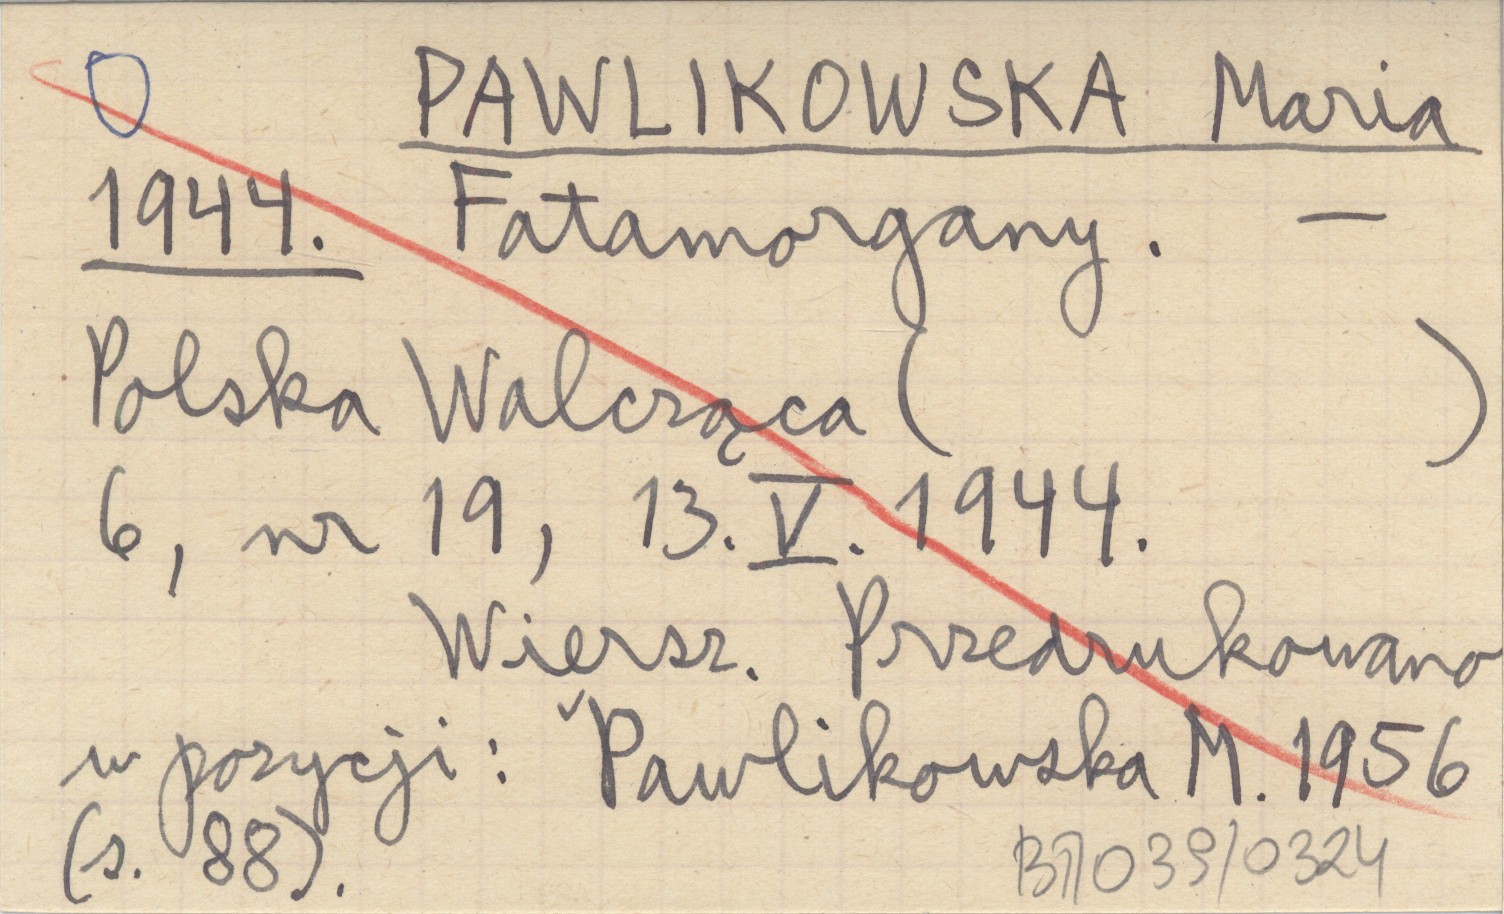 PAWLIKOWSKA Maria
1944. Fatamorgany. —
Polska Walcząca ( )
6, nr 19, 13.V.1944.
Wiersz. Przedrukowano
w pozycji: Pawlikowska M. 1956
(s. 88).